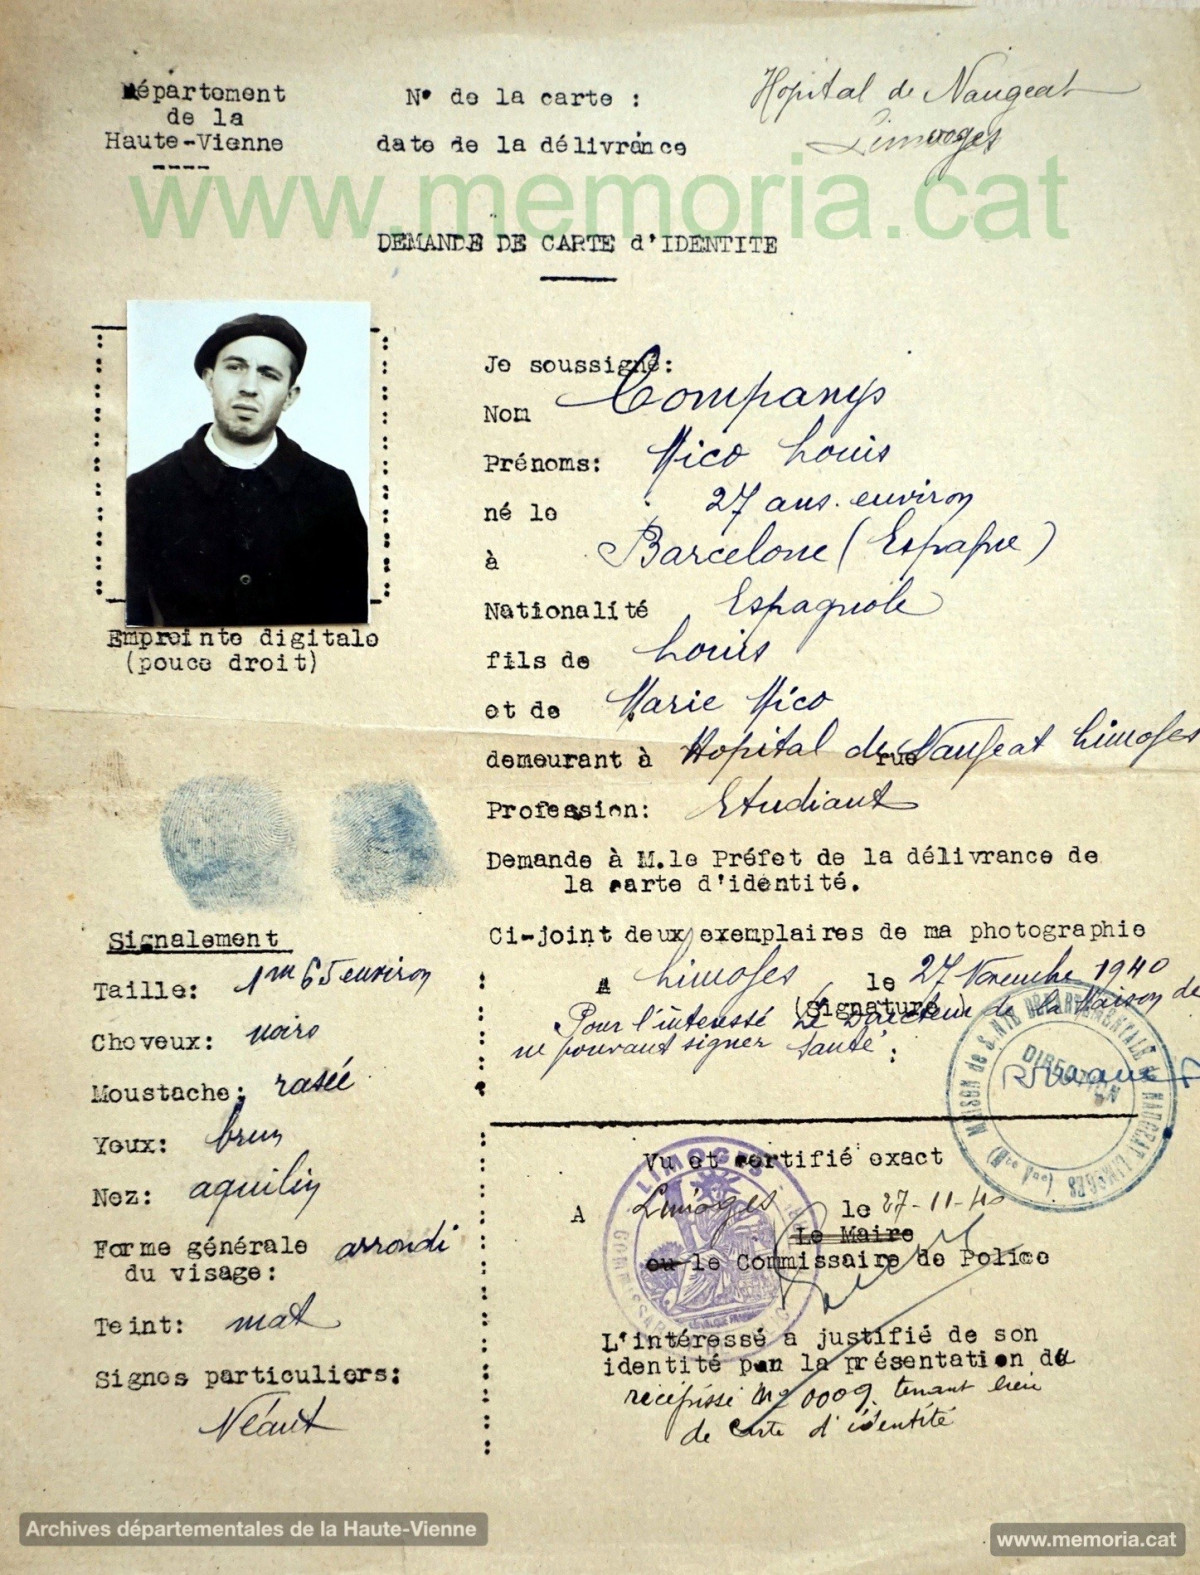 Département
de la
Haute-Vienne
N° de la carte :
date de la délivrance
Hopital de Naugeat
Limoges
www.memoria.cat
DEMANDE DE CARTE d'IDENTITE
Je soussigné:
Nom Companys
Prénoms: Mico Louis
né le 27 ans environ
à Barcelone (Espagne)
Nationalité Espagnole
fils de Louis
et de Marie Mico
demeurant à Hopital de rue Naugeat Limoges
Profession: Etudiant
Demande à M.le Préfet de la délivrance de
la carte d'identité.
Ci-joint deux exemplaires de ma photographie
A Limoges le 27 Novembre 1940
(Signature)
Pour l'interessé Le Directeur de la Maison de
ne pouvant signer Santé :
MAISON de SANTE DEPARTEMENTALE de NAUGEAT LIMOGES
DIRECTION
Empreinte digitale
(pouce droit)
Signalement
Taille: 1m 65 environ
Cheveux: noirs
Moustache: rasée
Yeux: brun
Nez: aquilin
Forme générale arrondi
du visage:
Teint: mat
Signes particuliers:
Néant
Vu et certifié exact
A Limoges le 27-11-40
Le Maire
ou le Commissaire de Police
LIMOGES
L'intéressé a justifié de son
identité par la présentation du
récépissé n° 0009 tenant lieu
de carte d'identité
Archives départementales de la Haute-Vienne
www.memoria.cat